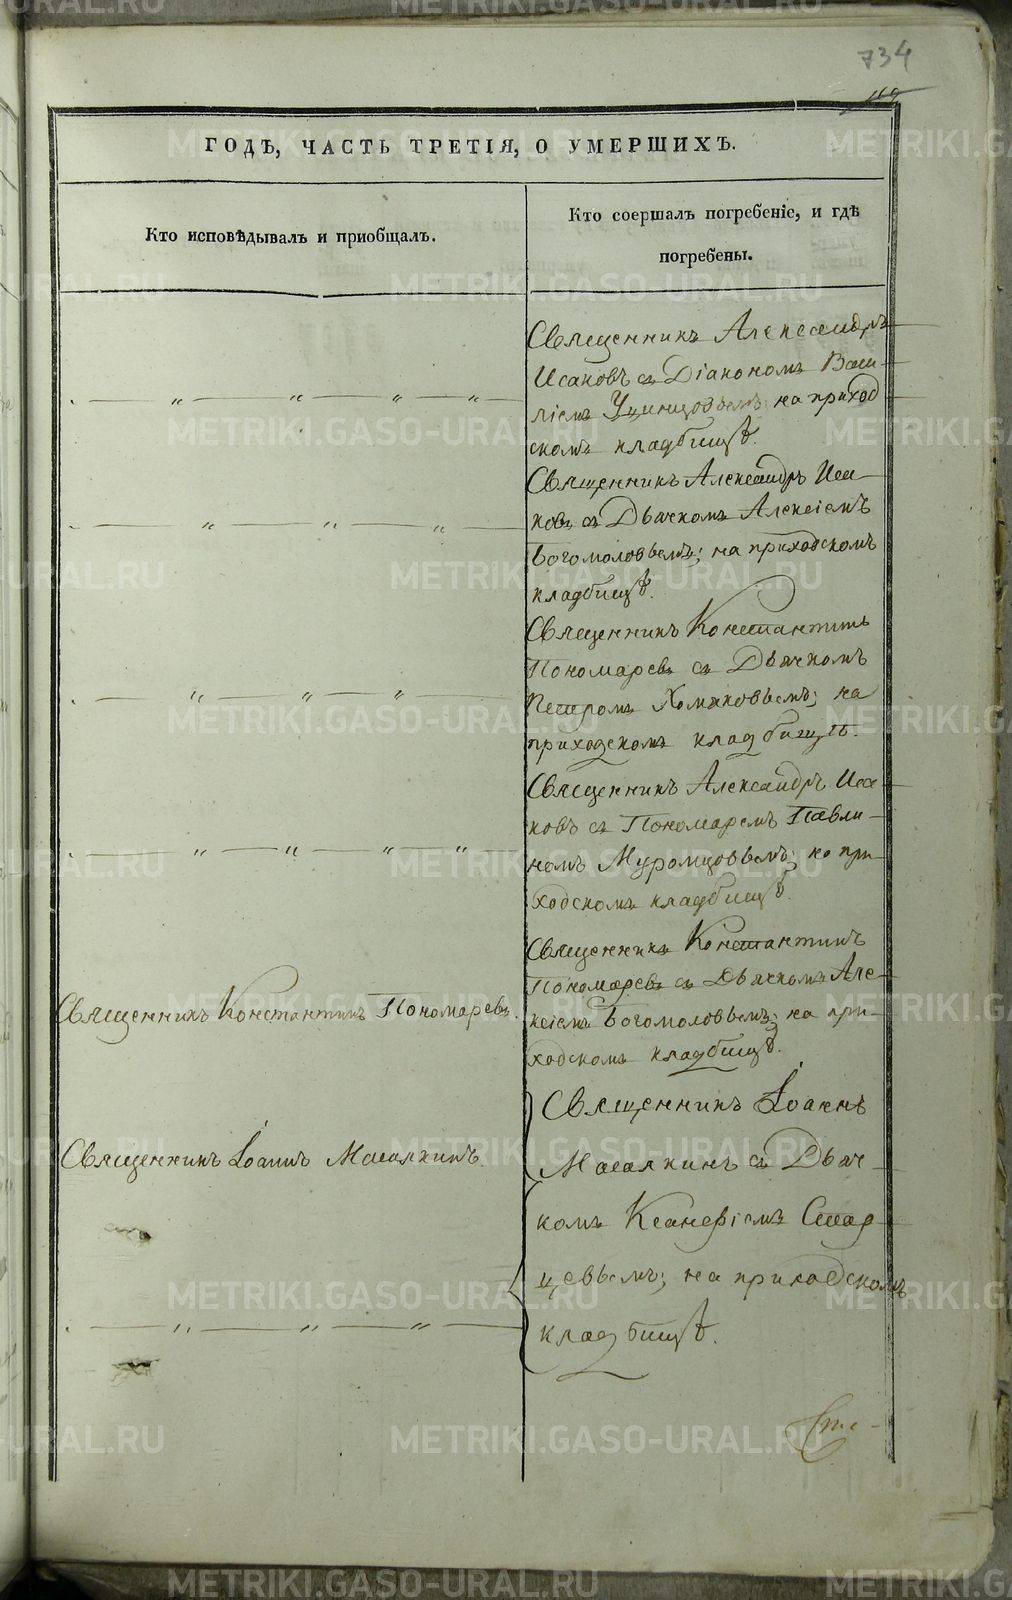 734
ГОДѢ, ЧАСТЬ ТРЕТІЯ, О УМЕРШИХЪ.
Кто исповѣдывалъ и пріобщалъ.
Кто соершалъ погребеніе, и гдѣ
погребены.
Священникъ Александръ
Исаковъ съ Діакономъ Васи-
ліемъ на приход
скомъ кладбищѣ.
Священникъ Александръ Иса-
ковъ съ Дьячкомъ Алексіемъ
Богомоловымъ; на приходскомъ
кладбищѣ.
Священникъ Константинъ
Пономаревъ съ Дьячкомъ
Петромъ Хомяковымъ; на
приходскомъ кладбищѣ.
Священникъ Александръ Иса-
ковъ съ Пономаремъ Павли-
номъ Муромцовымъ; на при-
ходскомъ кладбищѣ.
Священникъ Константинъ Пономаревъ.
Священникъ Константинъ
Пономаревъ съ Дьячкомъ Але-
ксіемъ Богомоловымъ; на при-
ходскомъ кладбищѣ.
Священникъ Іоаннъ Масалкинъ.
Священникъ Іоаннъ
Масалкинъ съ Дьяч-
комъ Ксанфіемъ Стар-
цевымъ; на приходскомъ
кладбищѣ.
METRIKI.GASO-URAL.RU